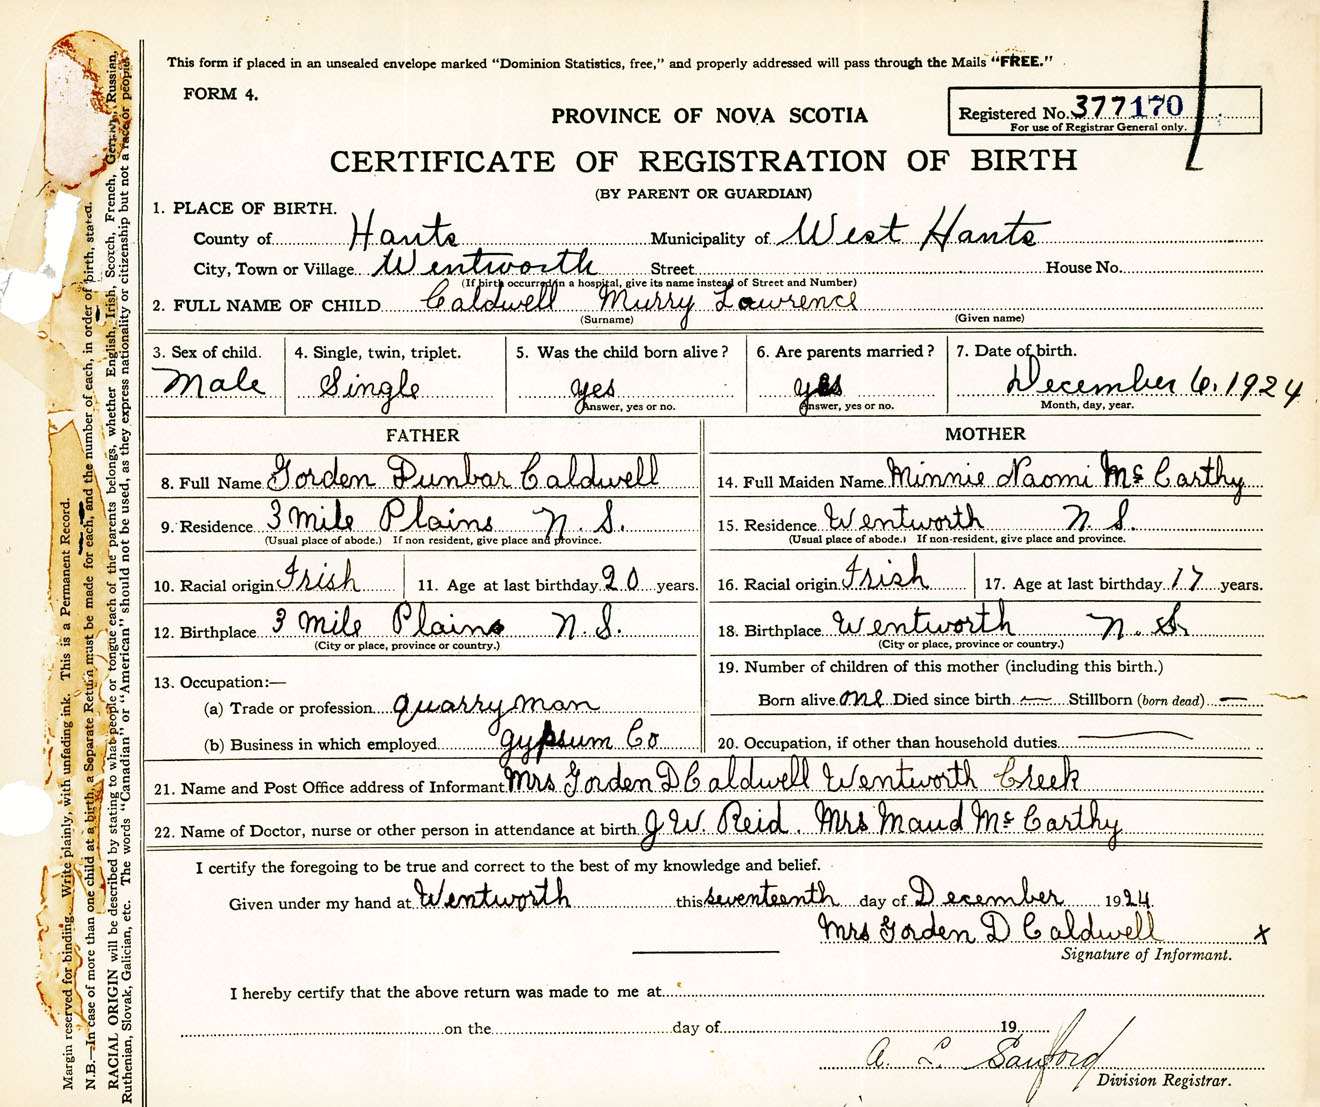 This form if placed in an unsealed envelope marked "Dominion Statistics, free," and properly addressed will pass through the Mails "FREE."
FORM 4.
PROVINCE OF NOVA SCOTIA
Registered No. 377170
For use of Registrar General only.
CERTIFICATE OF REGISTRATION OF BIRTH
(BY PARENT OR GUARDIAN)
1. PLACE OF BIRTH.
County of Hants Municipality of West Hants
City, Town or Village Wentworth Street House No.
(If birth occurred in a hospital, give its name instead of Street and Number)
2. FULL NAME OF CHILD Caldwell Murry Lawrence
(Surname) (Given name)
3. Sex of child. 4. Single, twin, triplet. 5. Was the child born alive? 6. Are parents married? 7. Date of birth.
Male Single yes yes December 6. 1924
Answer, yes or no. Answer, yes or no. Month, day, year.
FATHER MOTHER
8. Full Name Gorden Dunbar Caldwell 14. Full Maiden Name Minnie Naomi Mc Carthy
9. Residence 3 Mile Plains N. S. 15. Residence Wentworth N. S.
(Usual place of abode.) If non resident, give place and province. (Usual place of abode.) If non-resident, give place and province.
10. Racial origin Irish 11. Age at last birthday 20 years. 16. Racial origin Irish 17. Age at last birthday 17 years.
12. Birthplace 3 Mile Plains N. S. 18. Birthplace Wentworth N. S.
(City or place, province or country.) (City or place, province or country.)
13. Occupation:— 19. Number of children of this mother (including this birth.)
(a) Trade or profession quarry man Born alive one Died since birth — Stillborn (born dead) —
(b) Business in which employed gypsum Co 20. Occupation, if other than household duties
21. Name and Post Office address of Informant Mrs Gorden D Caldwell Wentworth Creek
22. Name of Doctor, nurse or other person in attendance at birth J W. Reid. Mrs Maud Mc Carthy
I certify the foregoing to be true and correct to the best of my knowledge and belief.
Given under my hand at Wentworth this seventeenth day of December 1924.
Mrs Gorden D Caldwell x
Signature of Informant.
I hereby certify that the above return was made to me at
on the day of 19
A. L. Sanford
Division Registrar.
Margin reserved for binding. Write plainly, with unfading ink. This is a Permanent Record.
N.B.—In case of more than one child at a birth, a Separate Return must be made for each, and the number of each, in order of birth, stated.
RACIAL ORIGIN will be described by stating to what people or tongue each of the parents belongs, whether English, Irish, Scotch, French, German, Russian,
Ruthenian, Slovak, Galician, etc. The words "Canadian" or "American" should not be used, as they express nationality or citizenship but not a race or people.